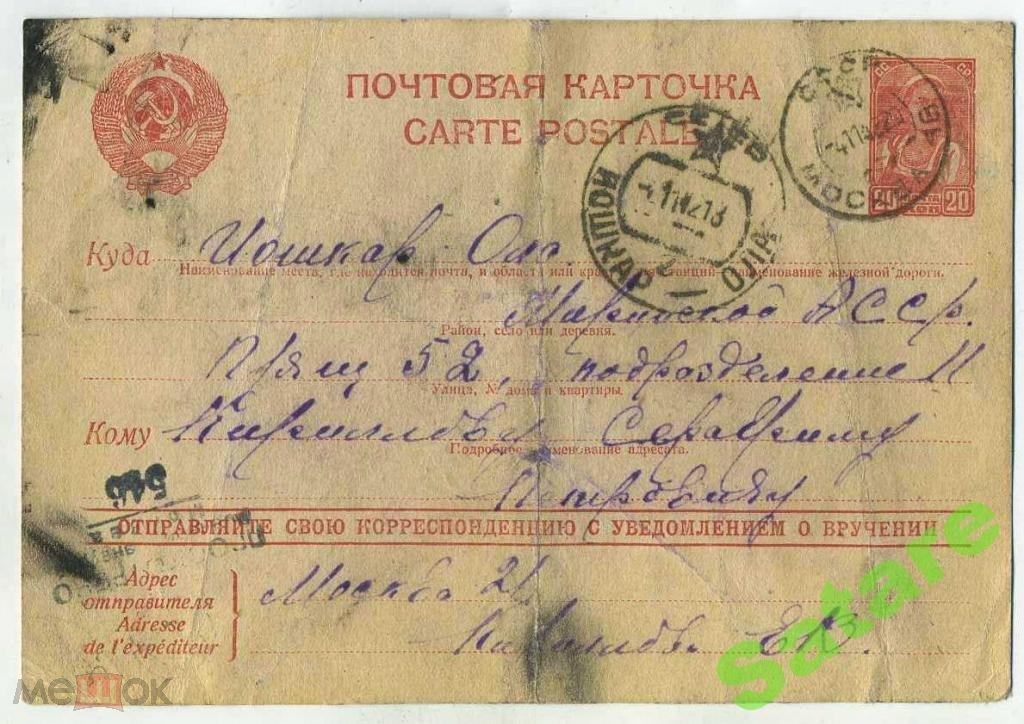 ПОЧТОВАЯ КАРТОЧКА
CARTE POSTALE
СССР
20 20
МОСКВА
ЙОШКАР — ОЛА
Куда Йошкар Ола
Наименование места, где находится почта, и области или края, для станций—наименование железной дороги.
Марийской АССР.
Район, село или деревня.
П/ящ 52, подразделение 11
Улица, № дома и квартиры.
Кому Кириллову Серафиму
Подробное наименование адресата.
Петровичу
546
ОТПРАВЛЯЙТЕ СВОЮ КОРРЕСПОНДЕНЦИЮ С УВЕДОМЛЕНИЕМ О ВРУЧЕНИИ
Адрес отправителя
Adresse de l'expéditeur
Москва 21
Satare
мешок